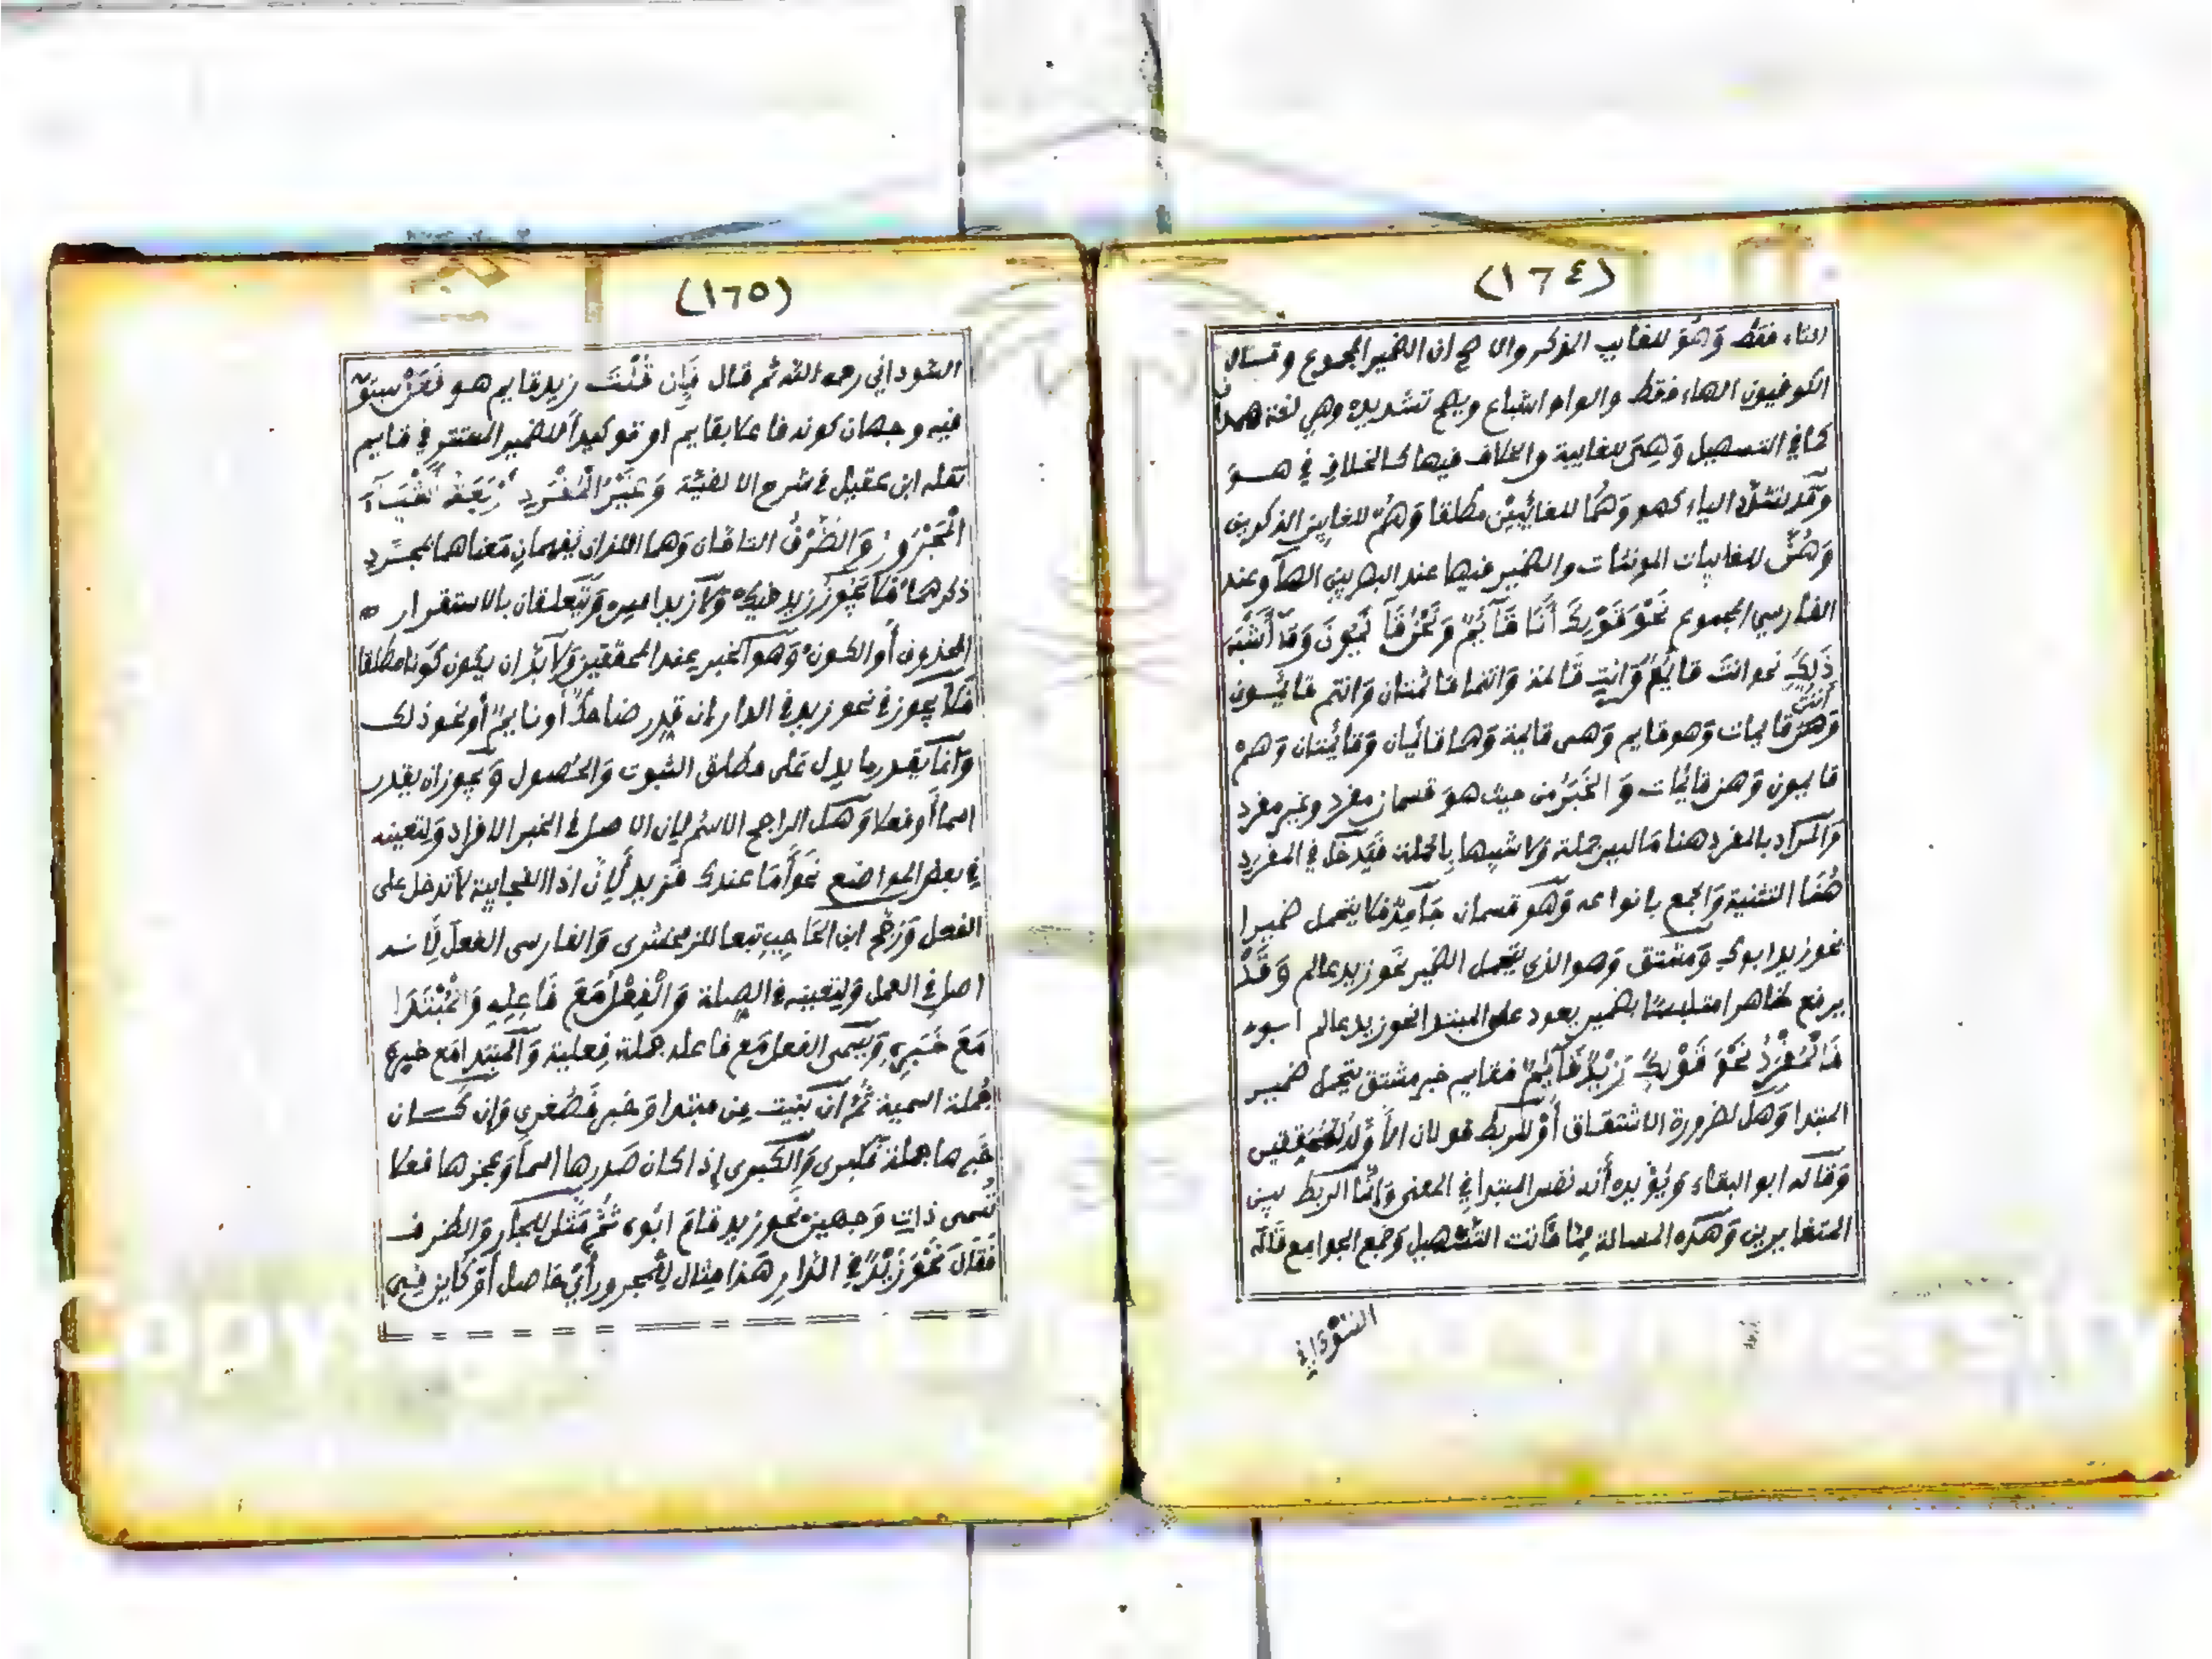 (١٦٤)
التاء فقط وَهُوَ للغايب المذكر والاصح ان الضمير المجموع وقال
الكوفيون الهاء فقط والواو اشباع ويصح تشديده وهي لغة همدان
كما في التسهيل وَهِيَ للغايبة والخلاف فيها كالخلاف في هو
وقد تشدد الياء كهو وَهُمَا للغائبين مطلقا وَهُمْ للغايبين الذكورين
وَهُنَّ للغايبات المونثات والضمير فيها عند البصريين الهآ وعند
الفارسي المجموع نَحْوَ قَوْلِكَ أَنَا قَآيِمٌ وَنَحْنُ قَآيِمُونَ وَمَآ أَشْبَهَ
ذَلِكَ نحو انتَ قايمٌ وَانتِ قَائمة وَانتما قائمتان وَانتم قايمون
وَأنتن قايمات وَهو قايم وَهى قايمة وَهما قائمان وَقائمتان وَهم
قايمون وَهن قائمات وَالخَبَرُ من حيث هو قسمان مفرد وغير مفرد
وَالمراد بالمفرد هنا مَا ليس جملة وَلا شبيها بالجملة فيَدخل في المفرد
هُنَا التثنية وَالجمع بانواعه وَهو قسمان جَآمِدٌ فلا يتحمل ضميرا
نحو زيد ابوك وَمشتق وَهو الذي يتحمل الضمير نحو زيد عالم وَقَدْ
يرفع ظاهرا متلبسًا بضمير يعود على المبتدا نحو زيد عالم ابوه
فَالْمُفْرَدُ نَحْوَ قَوْلِكَ زَيْدٌ قَآيِمٌ فقايم خبر مشتق يتحمل ضمير
المبتدا وَهل لضرورة الاشتقاق أَوْ للربط قولان الأَوَّلُ للمحققين
وَقاله ابو البقاء وَيُؤيده أَنه نفس المبتدا في المعنى وَإنَّما الربط بين
المتغايرين وَهذه المسالة مِمَّا فَاتت التسهيل وَجمع الجوامع قَالَه
السَّوْدَاني
(١٦٥)
السَّوداني رحمه الله ثم قال فَإِن قُلْتَ زيد قايم هو فَعَنْ سيبَوَيْه
فيه وجهان كونه فاعلا بقايم او توكيداً للضمير المستتر في قايم
نقله ابن عقيل في شرح الالفيّة وَغَيْرُ الْمُفْرَدِ أَرْبَعَةُ أَشْيَآءَ
الْمَجْرُورُ وَالظَّرْفُ التامّان وَهما اللذان يُفهمان مَعناهما بمجرّد
ذكرهما فَلا يَجُوزُ زيد فيك وَلا زيد امس وَيَتَعلقان بالاستقرار
المحذوف أَو الكون وَهو الخبر عند المحققين وَلا بدّ ان يكون كَونا مطلقا
فَلا يجوز في نحو زيد في الدار ان قدِّر ضاحكٌ أَو نايمٌ أو نحو ذلك
وَانمّا يقدر ما يدل عَلى مطلق الثبوت وَالحُصول وَيجوز ان يقدر
اسماً أو فعلا وَهل الراجح الاسم لان الاصل في الخبر الافراد وَلتعينه
في بعض المواضع نَحوَ أَمَا عندك فَزيد لأِنّ اذا الفجايية لا تدخل على
الفعل وَرَجّح ابن الحَاجِب تبعا للزمخشرى وَالفارسى الفعلَ لِأَنه
اصل في العمل وَلِتعينه في الصِلة وَالْفِعْلُ مَعَ فَاعِلِهِ وَالْمُبْتَدَا
مَعَ خَبَرِهِ وَيسمى الفعل مَع فاعله جملة فِعلية وَالمبتدا مَع خبره
جُملة اسمية ثُمّ ان بنيت مِن مبتدا وَخبر فَصُغرى وَإن كـــان
خَبرها جملة فكبرى وَالكبرى إذا كان صَدرها اسماً وَعجزها فعلا
تُسمى ذات وَجهين نحو زيد قامَ ابُوه ثُمَّ مَثَّل للجآر وَالظرف
فَقَالَ نَحْوَ زَيْدٌ فِي الدَّارِ هَذا مِثال للمجرور أَيْ حَاصل أَوْ كاين في